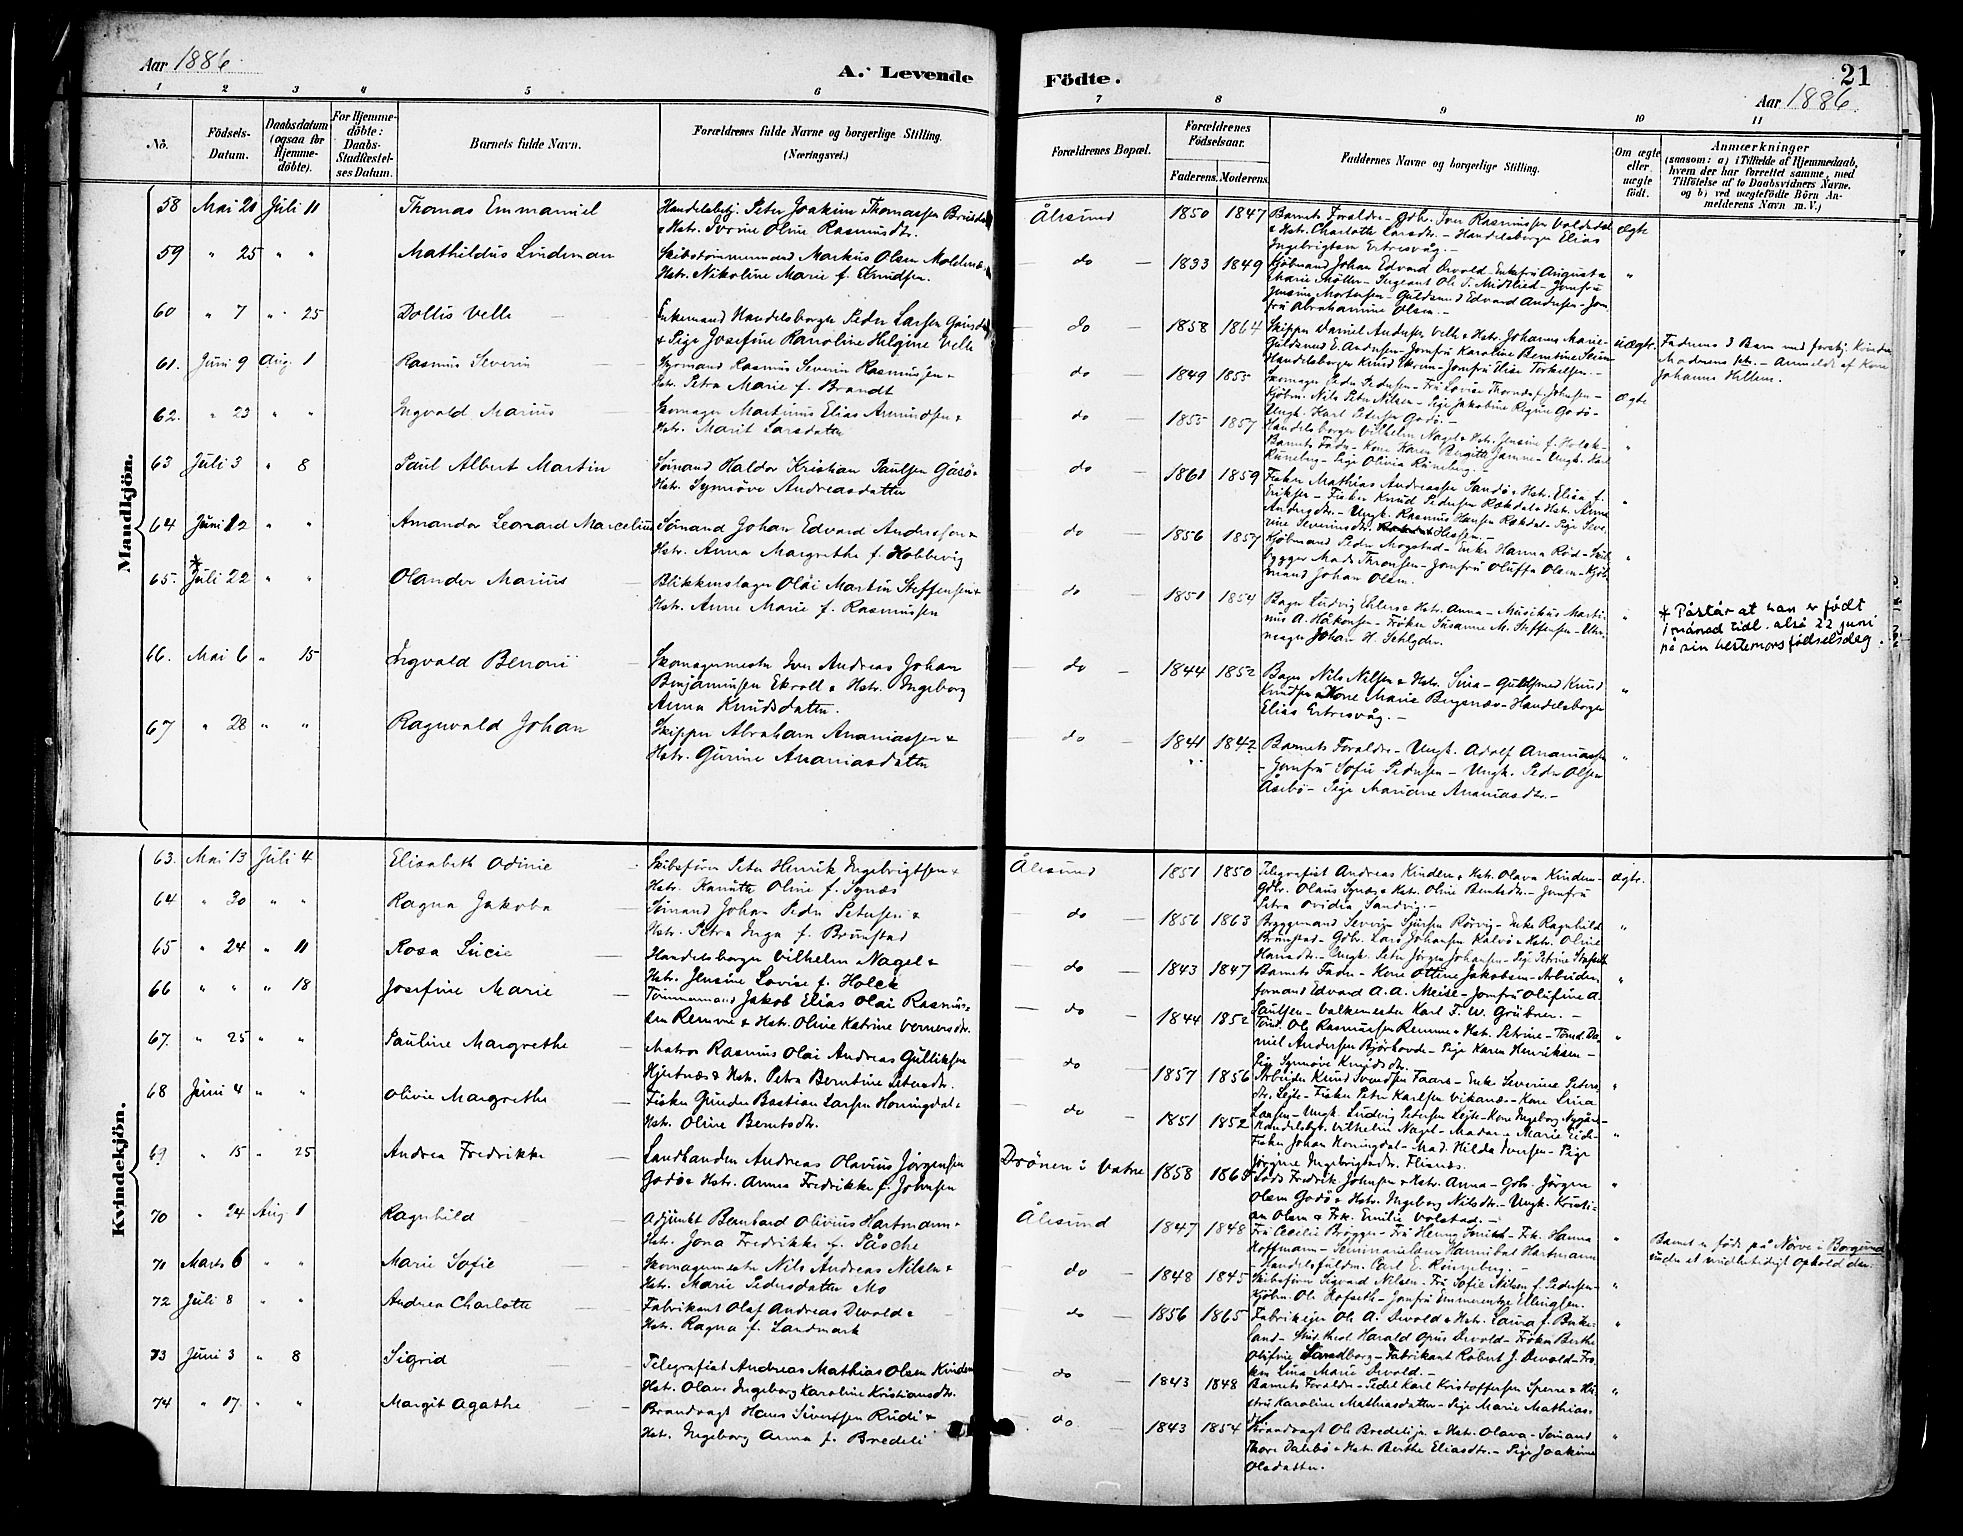 Aar 1886.
A. Levende
Födte.
21
Aar 1886.
1 2 3 4 5 6 7 8 9 10 11
No.
Födsels-
Datum.
Daabsdatum
(ogsaa for
Hjemme-
döbte).
For Hjemme-
döbte:
Daabs-
Stadfæstel-
ses Datum.
Barnets fulde Navn.
Forældrenes fulde Navne og borgerlige Stilling.
(Næringsvei.)
Forældrenes Bopæl.
Forældrenes
Födselsaar.
Faderens. Moderens.
Faddernes Navne og borgerlige Stilling.
Om ægte
eller
uægte
födt.
Anmærkninger
(saasom: a) i Tilfælde af Hjemmedaab,
hvem der har forrettet samme, med
Tilföielse af to Daabsvidners Navne.
og b) ved uægtefödte Börn An-
melderens Navn m. V.)
Mandkjön.
58 Mai 20 Juli 11 Thomas Emmanuel
Handelsbetj. Peter Joakim Thomassen
Hstr. Oline Rasmusdtr.
Ålesund 1850 1847
Barnets Forældre - Gdbr. Iver Rasmussen Valdedal
& Hstr. Charlotte Larsdtr. - Handelsborger Elias
Ingebrigtsen Ertresvåg. -
ægte
59 " 25 " " Mathildus Lindeman
Skibstömmermand Markus Olsen
Hstr. Nikoline Marie f. Knudsen.
do 1833 1849
Kjöbmand Johan Edvard Devold - Enkefru Augusta
Marie Möller - Sergeant Ole T. Midtlied - Jomfru
Jensine Mortensen - Guldsmed Edvard Andersen - Jom
fru Abrahamine Olsen. -
"
60 " 7 " 25 Dollis Velle
Enkemand Handelsborger Peder Larsen
& Pige Josefine Karoline Helgine Velle
do 1858 1864
Skipper Daniel Andersen Velle & Hstr. Johanne Marie -
Guldsmed E. Andersen - Jomfru Karoline Berntine
Handelsborger Knud Skrem - Jomfru Elise Torkelsen. -
uægte.
Faderens 3 Barn med forskj. Kvinder
Moderens 1ste. - Anmeldt af Kone
Johanne Hellem.
61. Juni 9 Aug. 1 Rasmus Severin
Styrmand Rasmus Severin Rasmussen &
Hstr. Petra Marie f. Brandt
do 1849 1855
Skomager Peder Pedersen - Fru Lovise f. Johnsen -
Kjöbm. Nils Peter Nilsen - Pige Jakobine Regine Godö -
Ungk. Karl Petersen Godö. -
ægte
62. " 23 " " Ingvald Marius
Skomager Martinus Elias Amundsen &
Hstr. Marit Larsdatter
do 1855 1857
Handelsborger Vilhelm Nagel & Hstr. Jensine f. Holck -
Barnets Fader - Kone Karen Birgitte - Ungk. Karl
Rüneberg - Pige Olivia Rüneberg. -
"
63 Juli 3 " 8 Paul Albert Martin
Sömand Haldor Kristian Paulsen Gåsö &
Hstr. Synnöve Andreasdatter
do 1861 1859
Fisker Mathias Andreassen Sandö & Hstr. Elisa f.
Eriksen - Fisker Knud Pedersen Rökdal & Hstr. Anne
Andersdtr. - Ungk. Rasmus Hansen Rökdal - Pige Seve-
rine Severinsdtr. Hessen. -
"
64 Juni 12 " " Amandor Leonard Marcelius
Sömand Johan Edvard Andersson &
Hstr. Anna Margrethe f. Hobbevig
do 1856 1857
Kjöbmand Peder Mogstad - Enke Hanna Röd - Skib
bygger Mads Thronsen - Jomfru Oluffa Olsen - Kjöb
mand Johan Olsen.
"
65. * Juli 22 " " Olander Marius
Blikkenslager Olai Martin Steffensen &
Hstr. Anne Marie f. Rasmussen
do 1851 1854
Bager Ludvig Ehlers & Hstr. Anna - Musikus Marti-
nus A. Håkonsen - Fröken Susanne M. Steffensen - Uhr-
mager Johan H. Schlyder.
"
* Påstår at han er födt
1 månad tidl. alså 22 juni
på sin bestemors födselsdag.
66. Mai 6 " 15 Ingvald Benoni
Skomagermester Iver Andreas Johan
Benjaminsen Ekroll & Hstr. Ingeborg
Anna Knudsdatter.
do 1844 1852
Bager Nils Nilsen & Hstr. Sina - Guldsmed Knud
Knudsen & Kone Marie Bugenæs - Handelsborger
Elias Ertresvåg. -
"
67 " 28 " " Ragnvald Johan
Skipper Abraham Ananiassen &
Hstr. Gurine Ananiasdatter
do 1841 1842
Barnets Forældre - Ungk. Adolf Ananiassen
- Jomfru Sofie Pedersen - Ungk. Peder Olsen
Åsebö - Pige Mariane Ananiasdtr. -
"
Kvindekjön.
63. Mai 13 Juli 4 Elisabeth Odinie
Skibsförer Peter Henrik Ingebrigtsen &
Hstr. Kanutte Oline f. Synæs
Ålesund 1851 1850
Telegrafist Andreas Kindem & Hstr. Olava Kindem -
Gdbr. Olaus Synæs & Hstr. Oline Berntsdtr. - Jomfru
Petra Ovidia Sandvig. -
ægte.
64 " 30 " " Ragna Jakoba
Sömand Johan Peder Petersen &
Hstr. Petra Inga f. Brunstad
do 1856 1863
Bryggemand Severin Sjursen Rörvig - Enke Ragnhild
Brunstad - Gdbr. Lars Johansen Kalvö & Hstr. Oline
Hansdtr. - Ungk. Peter Jörgen Johansen - Pige Petrine
"
65 " 24 " 11 Rosa Lucie
Handelsborger Vilhelm Nagel &
Hstr. Jensine Lovise f. Holck
do 1843 1847
Barnets Fader - Kone Ottine Jakobsen - Arbeider
formand Edvard A. A. Meise - Jomfru Olufine A.
Paulsen - Valkemester Karl F. W. Grübner. -
"
66 " " " 18 Josefine Marie
Tömmermand Jakob Elias Olai Rasmus-
sen Remme & Hstr. Oline Katrine Vernersdtr.
do 1844 1852
Tömd. Ole Rasmussen Remme & Hstr. Petrine - Tömd. Da-
niel Andersen Bjørhovde - Pige Karen Henriksen -
Pige Synnöve Knudsdtr.
"
67. " 25 " " Pauline Margrethe
Matros Rasmus Olai Andreas Gulliksen
Hjertnæs & Hstr. Petra Berntine Petersdtr.
do 1857 1856
Arbeider Knud Svendsen Faare - Enke Severine Peters-
dtr. Leite - Fisker Peter Karlsen Vikanæs - Kone Lina
Larsen - Ungk. Ludvig Petersen Leite - Kone Ingeborg Nygård
"
68 Juni 4 " " Olivie Margrethe
Fisker Gunder Bastian Larsen Honningdal &
Hstr. Oline Berntsdtr.
do 1851 1852
Handelsbgr. Vilhelm Nagel - Madam Marie Eide -
Fisker Johan Honingdal - Mad. Hilda Iversen - Pige
Jörgine Ingebrigtsdtr. Flisnæs.
"
69 " 15 " 25 Andrea Fredrikke
Landhandler Andreas Olavius Jörgensen
Godö & Hstr. Anna Fredrikke f. Johnsen
Drönen i Vatne 1858 1865
Lods Fredrik Johnsen & Hstr. Anna - Gdb. Jörgen
Olsen Godö & Hstr. Ingeborg Nilsdtr. - Ungk. Kristi-
an Olsen & Frk. Emilie Volstad. -
"
70 " 24 Aug 1 Ragnhild
Adjunkt Bernhard Olivius Hartmann &
Hstr. Jona Fredrikke f. Påsche
Ålesund 1847 1848
Fru Cecilie Brögger - Fru Henny Smith - Frk. Hanna
Hoffmann - Seminarielærer Hannibal Hartmann
- Handelsfuldm. Carl E. Rönneberg. -
"
Barnet er födt på Nörve i Borgund
under et midlertidigt Ophold der.
71 Marts 6 " " Marie Sofie
Skomagermester Nils Andreas Nilsen &
Hstr. Marie Pedersdatter Mo
do 1848 1845
Skibsförer Sigvard Nilsen - Fru Sofie Nilsen f. Pedersen -
Kjöbm. Ole Hofseth - Jomfru Emmerentze Ellingsen.
"
72 Juli 8 " " Andrea Charlotte
Fabrikant Olaf Andreas Devold &
Hstr. Ragna f. Landmark
do 1856 1865
Fabrikejer Ole A. Devold & Hstr. Laura f.
land - Stud. theol Harald Opus Devold - Fröken Berthe
Olufine Sandborg - Fabrikant Robert J. Devold - Frö-
ken Lina Marie Devold. -
"
73 Juni 3 " 8 Sigrid
Telegrafist Andreas Mathias Olsen Kindem
Hstr. Olava Ingeborg Karoline Kristiansdtr.
do 1843 1848
Barnets Forældre - Pedel Karl Kristoffersen Sperre & Hu-
stru Karoline Mathiasdatter - Pige Marie Mathias-
dtr.
"
74 " 17. " " Margit Agathe
Brandvagt Hans Sivertsen Rudi &
Hstr. Ingeborg Anna f. Bredeli
do. 1843 1854
Brandvagt Ole Bredeli jr. & Hstr. Olava - Sömand
Thore Dalebö & Hstr. Berthe Eliasdtr. - Pige Joakime
Olsdatter.
"